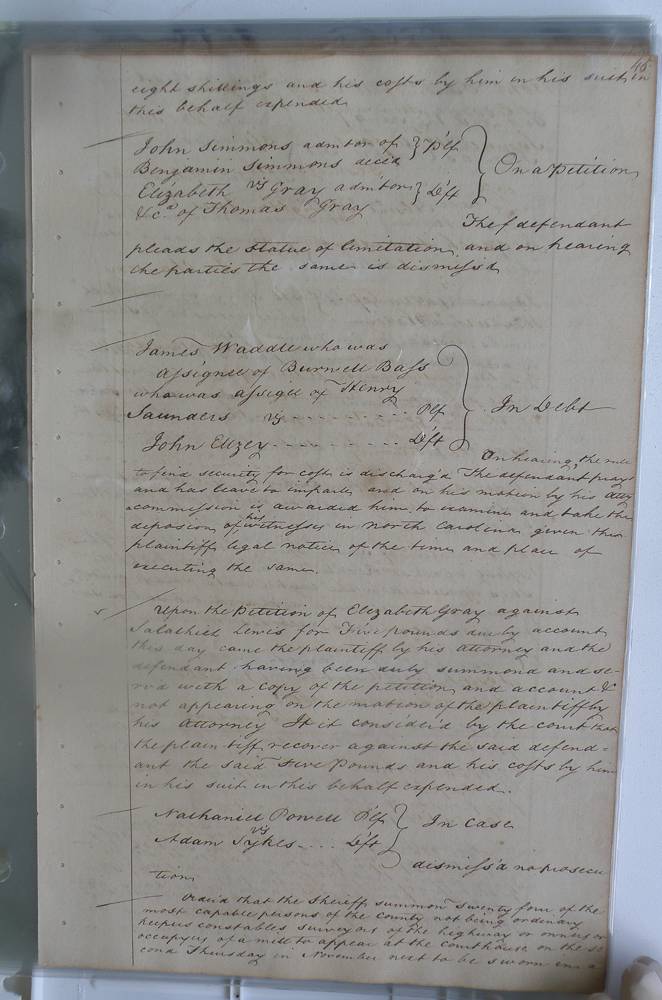 eight shillings and his costs by him in his suit in
this behalf expended
John Simmons admtor of } Plf
Benjamin Simmons decd
vs
} On a Petition
Elizabeth Gray admtor } Deft
&c. of Thomas Gray
The defendant
pleads the Statue of limitation, and on hearing
the parties the same is dismiss'd
James Waddle who was
assignee of Burwell Bass
who was assigee of Henry
Saunders vs - - - - - - - Plf
} In Debt
John Ellzey - - - - - - - - - Deft
On hearing, the rule
to find security for costs is discharg'd The defendant prays
and has leave to imparle and on his motion by his Atty
a commission is awarded him to examine and take the
deposion of his witnesses in North Carolina given the
plaintiff legal notice of the time and place of
executing the same.
Upon the Petition of Elizabeth Gray against
Salathiel Lewis for Five pounds due by account
this day came the plaintiff by his attorney and the
defendant having been duly summond and se-
rv'd with a copy of the petition and account &
not appearing on the motion of the plaintiff by
his Attorney It is consider'd by the court that
the plaintiff recover against the said defend=
ant the said Five Pounds and his costs by him
in his suit in this behalf expended.
Nathaniel Powell Plf
vs
} In Case
Adam Sykes .... Deft
dismiss'd no prosecu
tion
Order'd that the Sheriff summon twenty four of the
most capable persons of the county not being ordinary
keepers constables surveyors of the highway or owners or
occupyers of a mill to appear at the courthouse on the se
cond Thursday in November next to be sworn in a